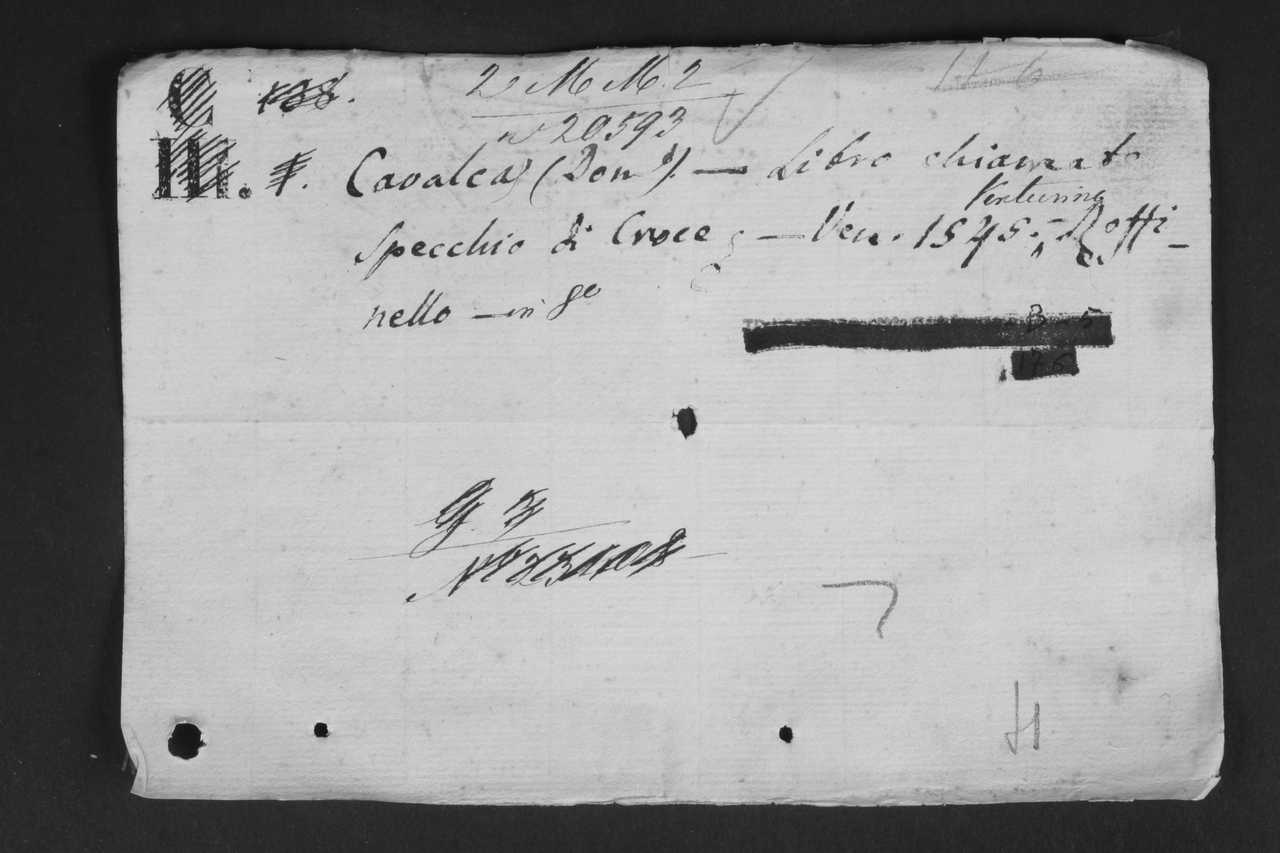 C 138.
2 M M. 2
n° 20593
III. 7. Cavalca (Domᵒ). — Libro chiamato
Specchio di Croce — Ven. 1545. Venturino Roffi-
nello — in 8°
B 5
176